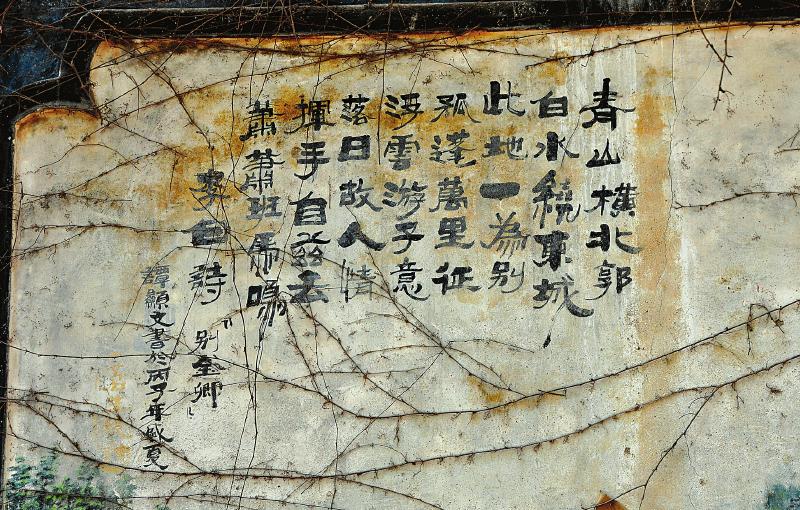 青山橫北郭
白水繞東城
此地一為別
孤蓬萬里征
浮雲游子意
落日故人情
揮手自茲去
蕭蕭班馬鳴
李白詩
"別金卿"
譚顯文書於丙子年盛夏